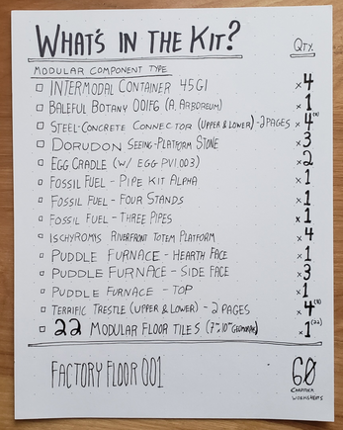 WHAT'S IN THE KIT? QTY.
MODULAR COMPONENT TYPE
INTERMODAL CONTAINER 45G1 x4
BALEFUL BOTANY 001FG (A. ARBOREUM) x1
STEEL-CONCRETE CONNECTOR (UPPER & LOWER) - 2 PAGES x4
DORUDON SEEING-PLATFORM STONE x3
EGG CRADLE (W/ EGG PV1.003) x2
FOSSIL FUEL - PIPE KIT ALPHA x1
FOSSIL FUEL - FOUR STANDS x1
FOSSIL FUEL - THREE PIPES x1
ISCHYROMIS RIVERFRONT TOTEM PLATFORM x4
PUDDLE FURNACE - HEARTH FACE x1
PUDDLE FURNACE - SIDE FACE x3
PUDDLE FURNACE - TOP x1
TERRIFIC TRESTLE (UPPER & LOWER) - 2 PAGES x4
22 MODULAR FLOOR TILES x1 (22)
FACTORY FLOOR 001 60